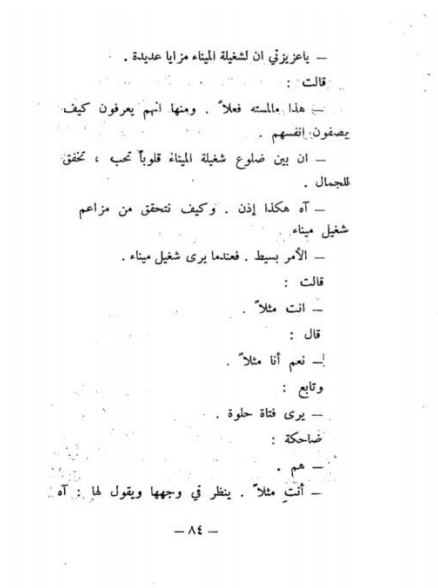 – ياعزيزتي ان لشغيلة الميناء مزايا عديدة .
قالت :
– هذا مالمسته فعلاً . ومنها انهم يعرفون كيف
يصفون انفسهم .
– ان بين ضلوع شغيلة الميناء قلوباً تحب ، تخفق
للجمال .
– آه هكذا إذن . وكيف نتحقق من مزاعم
شغيل ميناء
– الأمر بسيط . فعندما يرى شغيل ميناء .
قالت :
– انت مثلاً .
قال :
– نعم أنا مثلاً .
وتابع :
– يرى فتاة حلوة .
ضاحكة :
– هم .
– أنت مثلاً . ينظر في وجهها ويقول لها : آه
– ٨٤ –